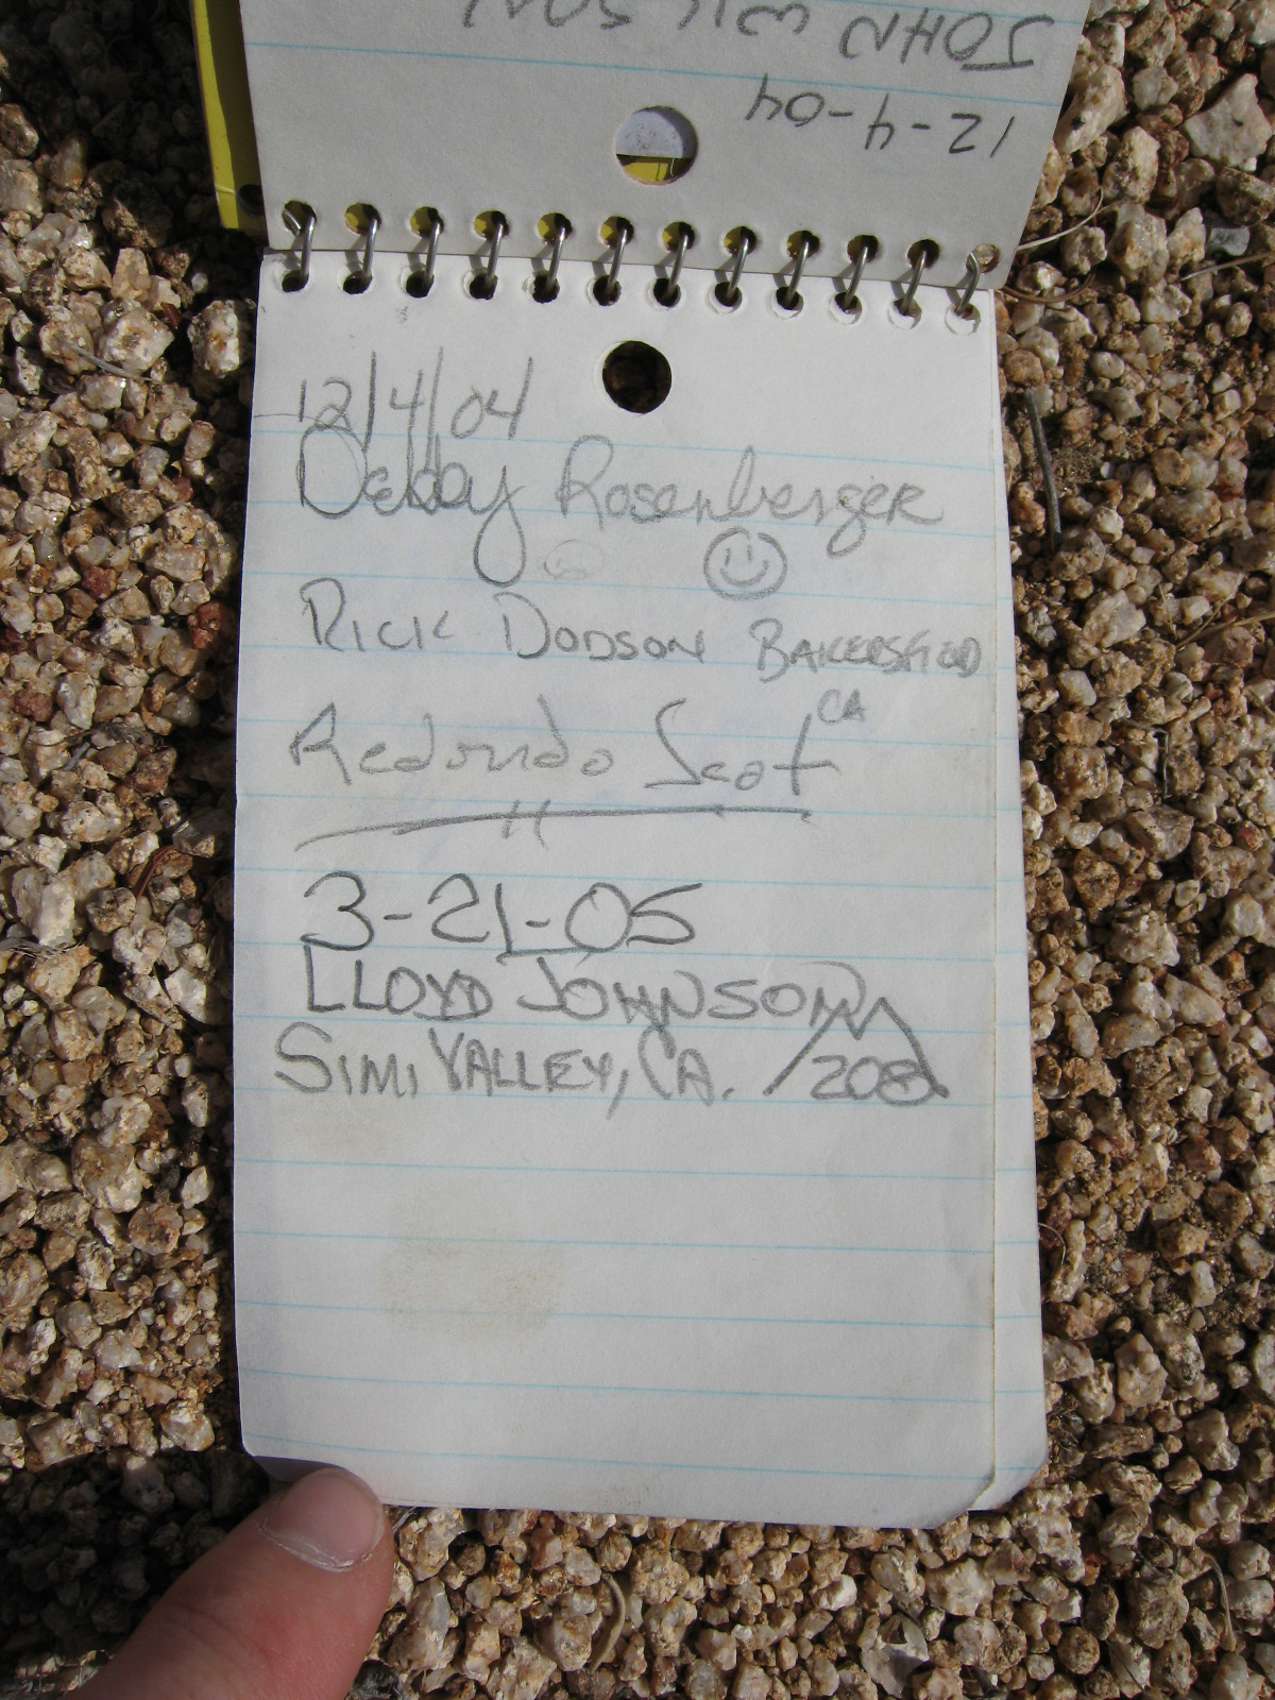 JOHN WILSON
12-4-04
12/4/04
Debby Rosenberger
RICK DODSON BAKERSFIELD
CA
Redondo Scot
3-21-05
LLOYD JOHNSON
SIMI VALLEY, CA. 208